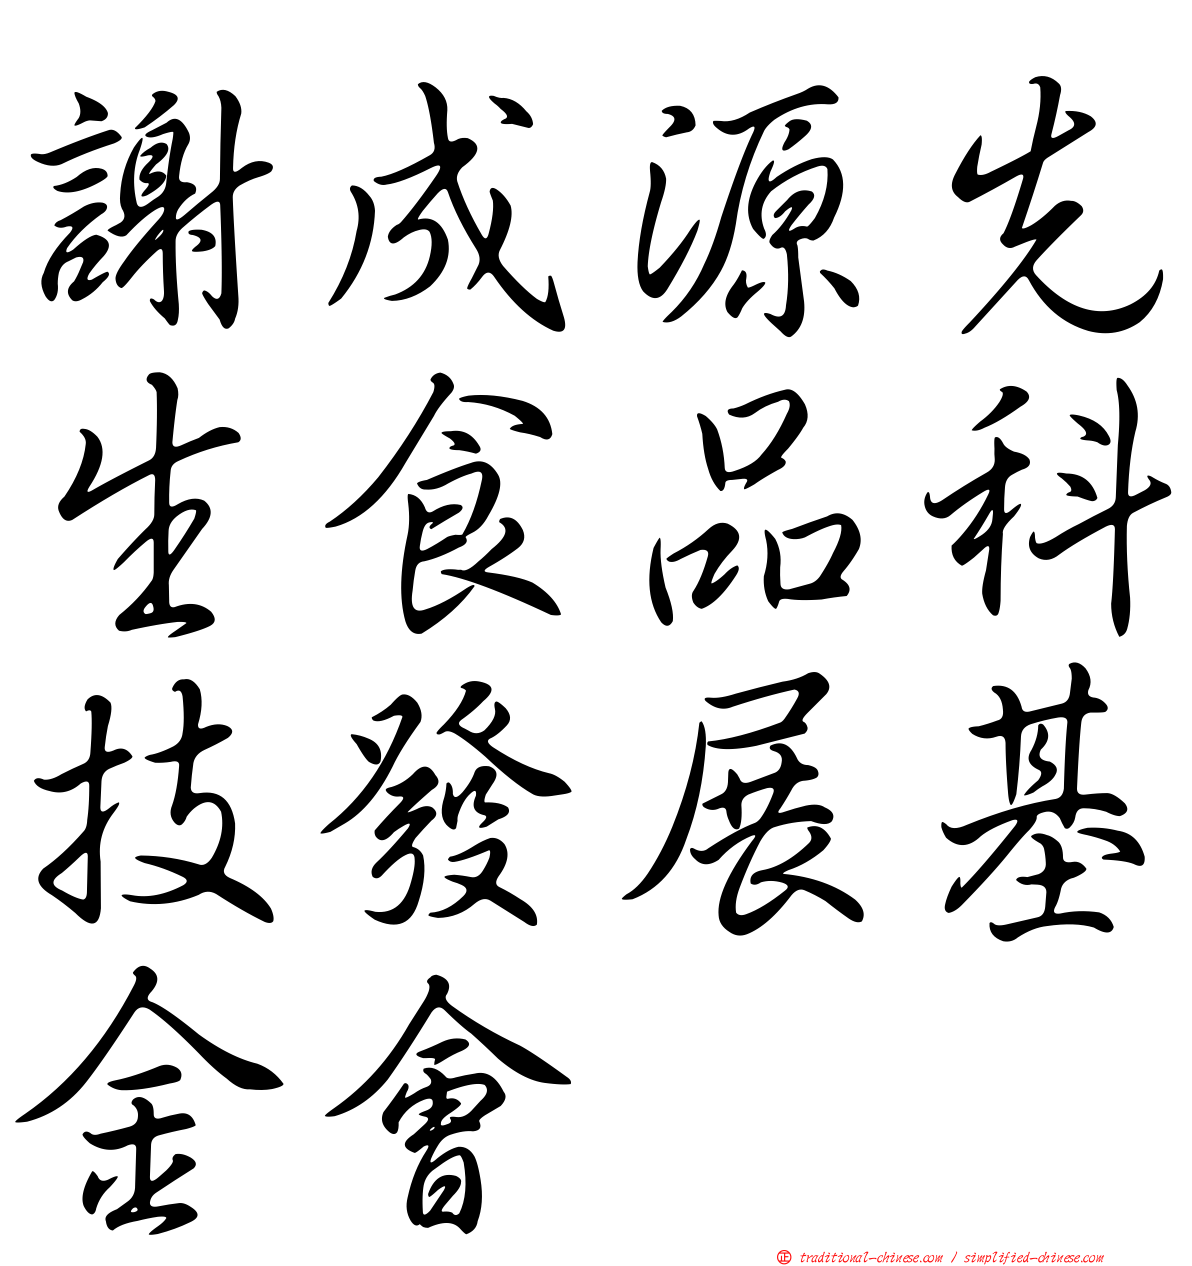 謝成源先
生食品科
技發展基
金會
㊣ traditional-chinese.com / simplified-chinese.com